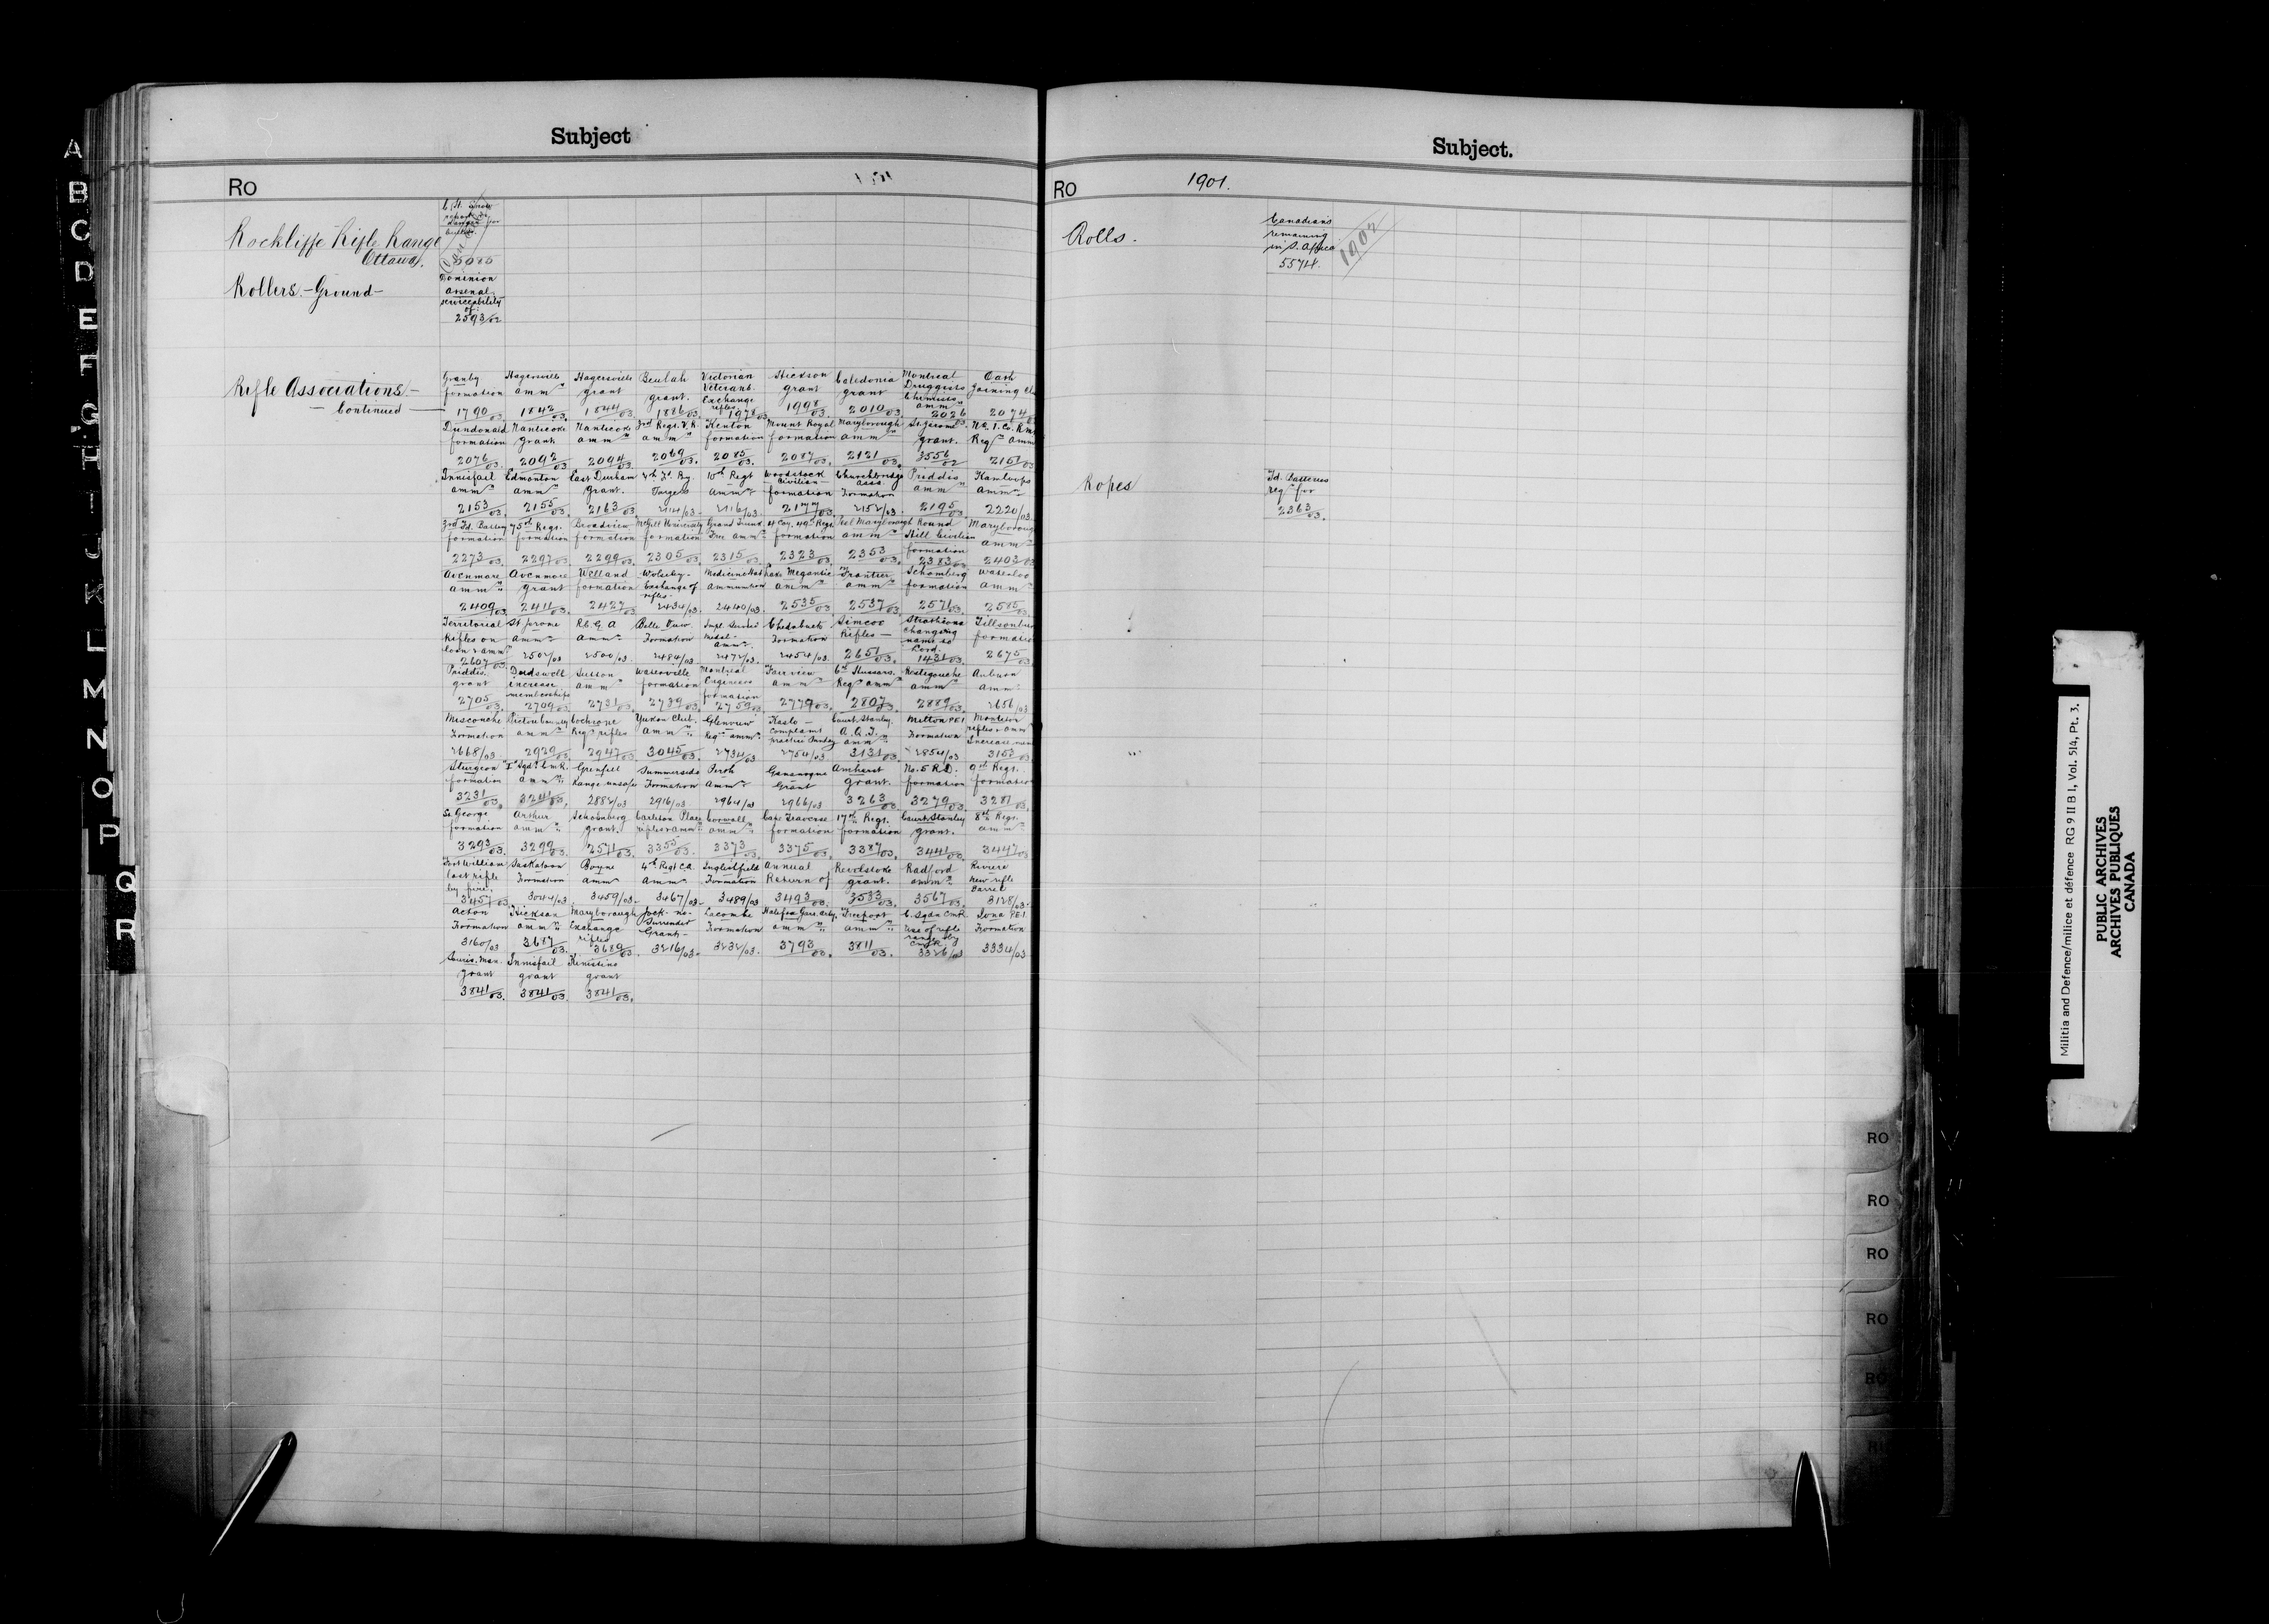 Subject
RO
Rockliffe Rifle Range
Ottawa.
5085
Rollers - Ground -
Dominion
Arsenal
serviceability
of
2593/02
Rifle Associations -
- Continued -
Granby formation 1790/03
Hagersville amm 1842/03
Hagersville grant 1844/03
Beulah grant. 1886/03
Victorian Veterans. Exchange rifles 1978/03
Hickson grant 1998/03
Caledonia grant 2010/03
Montreal Druggists Chemists amm 2026
Cash Joining 2074
Dundonald formation 2076/03
Nanticoke grant 2092/03
Nanticoke amm 2094/03
3rd Regt. V.R. amm 2069/03
Kenton formation 2085/03
Mount Royal formation 2087/03
Maryborough amm 2121/03
St. Jerome grant. 3556/02
No. 1. Co. Req amm 2151/03
Innisfail amm 2153/03
Edmonton amm 2155/03
East Durham Grant. 2163/03
Targets 2114/03
10th Regt amm 2116/03
Woodstock Civilian formation 2177/03
Churchbridge assn. Formation 2152/03
Priddis amm 2195/03
Kamloops amm 2220/03
3rd Fd. Battery formation 2273/03
75th Regt. formation 2297/03
Broadview formation 2299/03
McGill University formation 2305/03
Grand Trunk Free amm 2315/03
49th Regt formation 2323/03
Peel Maryborough amm 2353/03
Round Hill Civilian formation 2383/03
Maryborough amm 2403/03
Avonmore amm 2409/03
Avonmore grant 2411/03
Welland formation 2427/03
Wolseley - Exchange of rifles - 2434/03
Medicine Hat ammunition 2440/03
Lake Megantic amm 2535/03
Frontier amm 2537/03
Schomberg formation 2571/03
Waterloo amm 2585/03
Territorial Rifles on loan & amm 2607/03
St Jerome amm 2502/03
R.C.G.A amm 2500/03
Belle View Formation 2484/03
2472/03
Chedabucto Formation 2454/03
Simcoe Rifles - 2651/03
Strathcona changing name to Lord. 1431/03
Tillsonburg formation 2675/03
Priddis grant 2705/03
Dudswell increase membership 2709/03
Sutton amm 2731/03
Waterville formation 2739/03
Montreal Engineers formation 2753/03
Fairview amm 2779/03
6th Hussars. Req amm 2807/03
Restigouche amm 2889/03
Auburn amm 2656/03
Miscouche Formation 2668/03
Pictou County amm 2929/03
Cochrane Req rifles 2947/03
Yukon Club. amm 3045/03
Glenview Req amm 2734/03
Kaslo - Complaint practice Sunday 2754/03
Court Stanley. amm 3131/03
Milton P.E.I Formation 2854/03
Moncton rifles & amm 3153/03
Sturgeon formation 3231/03
amm 3241/03
Grenfell Range unsafe 2882/03
Summerside Formation 2916/03
Perth amm 2964/03
Gananoque Grant 2966/03
Amherst grant. 3263/03
No. 5 R.D. formation 3279/03
9th Regt. formation 3281/03
St. George formation 3293/03
Arthur amm 3299/03
Schomberg grant. 2571/03
Carleton Place rifles & amm 3353/03
Cornwall amm 3373/03
Cape Traverse formation 3375/03
17th Regt. formation 3387/03
Court Stanley grant. 3441/03
8th Regt. amm 3447/03
Fort William lost rifle by fire. 3457/03
Saskatoon Formation 3044/03
Boyne amm 3459/03
4th Regt C.A. amm 3467/03
Englishfield Formation 3489/03
Annual Return of 3493/03
Revelstoke grant. 3533/03
Radford amm 3567/03
Riviere New rifle barrel 3128/03
Acton Formation 3160/03
Hickson amm 3687/03
Maryborough Exchange rifles 3689/03
Jock - no - Surrender Grant - 3216/03
Lacombe Formation 3232/03
amm 3793/03
Freeport amm 3811/03
C. Sqdn CMR. Use of rifle range by CMR 3326/03
Iona P.E.I Formation 3334/03
Souris. Man. grant 3841/03
Innisfail grant 3841/03
Kinistino grant 3841/03
Subject.
RO 1901.
Rolls.
Canadians
remaining
in S. Africa
5574.
1902
Ropes
Fd. Batteries
req for
2363/03.
A
B
C
D
E
F
G
H
I
J
K
L
M
N
O
P
Q
R
RO
RO
RO
RO
RO
Militia and Defence/milice et défence RG 9 II B 1, Vol. 514, Pt. 3.
PUBLIC ARCHIVES
ARCHIVES PUBLIQUES
CANADA